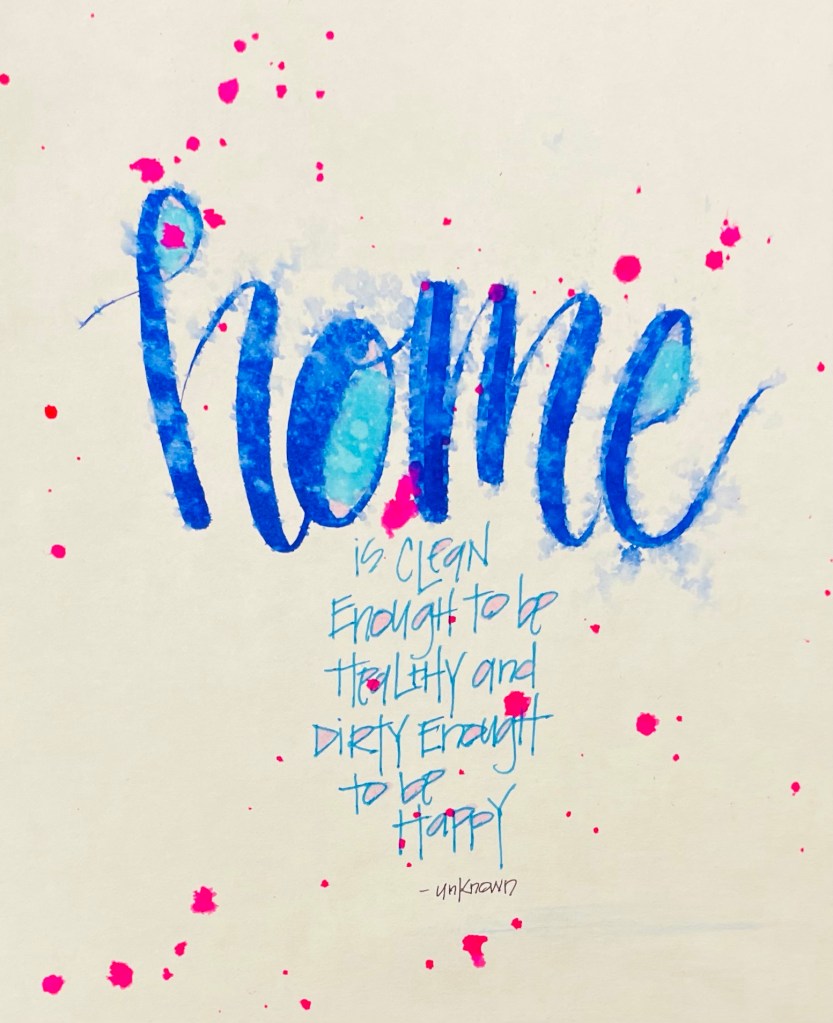 home
is CLEAN
Enough to be
HEALtHY and
DiRTY Enough
to be
HAPPY
- unknown